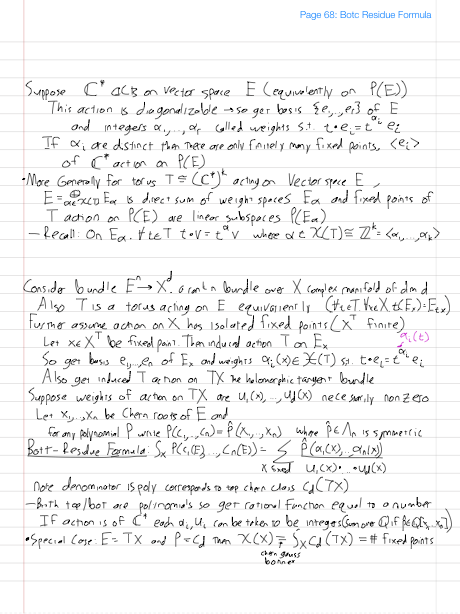 Page 68: Botc Residue Formula
Suppose ℂ* acts on vector space E (equivalently on P(E))
This action is diagonalizable → so get basis {e₁,..,eᵣ} of E
and integers α₁,..,αᵣ called weights s.t. t•eᵢ = t^αᵢ eᵢ
If αᵢ are distinct then there are only finitely many fixed points, <eᵢ>
of ℂ* action on P(E)
•More Generally for torus T ≅ (ℂ*)^k acting on Vector space E,
E = ⊕_{α∈X(T)} E_α is direct sum of weight spaces E_α and fixed points of
T action on P(E) are linear subspaces P(E_α)
– Recall: On E_α, ∀t∈T t•v = t^α v where α∈X(T) ≅ ℤ^k = <α₁,..,α_k>
Consider bundle Eⁿ → X^d. a rank n bundle over X complex manifold of dim d
Also T is a torus acting on E equivariently (∀t∈T, ∀x∈X t(Eₓ) = E_tx)
Further assume action on X has isolated fixed points (X^T finite)
Let x∈X^T be fixed point. Then induced action T on Eₓ
αᵢ(t)
So get basis e₁,..,eₙ of Eₓ and weights αᵢ(x)∈X(T) s.t. t•eᵢ = t^αᵢ eᵢ
Also get induced T action on TX the holomorphic tangent bundle
Suppose weights of action on TX are u₁(x),..,u_d(x) necessarily non zero
Let x₁,..,xₙ be Chern roots of E and
for any polynomial P write P(c₁,..,cₙ) = P̂(x₁,..,xₙ) where P̂∈Λₙ is symmetric
Bott-Residue Formula: ∫_X P(c₁(E),..,cₙ(E)) = Σ_{x fixed} P̂(α₁(x),..,αₙ(x)) / u₁(x)•...•u_d(x)
Note denominator is poly corresponds to top chern class C_d(TX)
– Both top/bot are polinomials so get rational function equal to a number
If action is of ℂ* each αᵢ, uᵢ can be taken to be integers (sum over ℚ if P∈ℚ[x₁..xₙ])
•Special Case: E = TX and P = C_d Then χ(X) = ∫_X C_d(TX) = # fixed points
chern gauss
bonnet